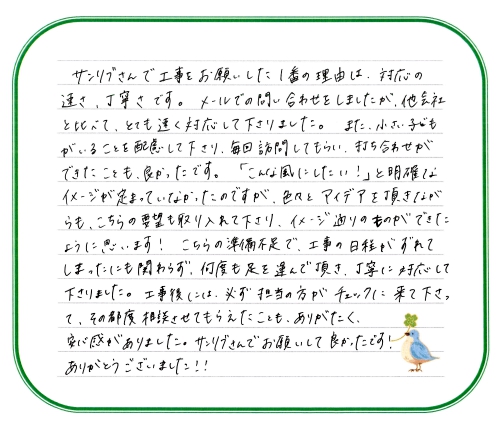 サンリブさんで工事をお願いした1番の理由は、対応の
速さ、丁寧さです。メールでの問い合わせをしましたが、他会社
と比べて、とても速く対応して下さりました。また、小さい子ども
がいることを配慮して下さり、毎回訪問してもらい、打ち合わせが
できたことも、良かったです。「こんな風にしたい!」と明確な
イメージが定まっていなかったのですが、色々とアイデアを頂きなが
らも、こちらの要望も取り入れて下さり、イメージ通りのものができた
ように思います! こちらの準備不足で、工事の日程がずれて
しまったにも関わらず、何度も足を運んで頂き、丁寧に対応して
下さりました。工事後には、必ず担当の方がチェックに来て下さっ
て、その都度相談させてもらえたことも、ありがたく、
安心感がありました。サンリブさんでお願いして良かったです!
ありがとうございました!!